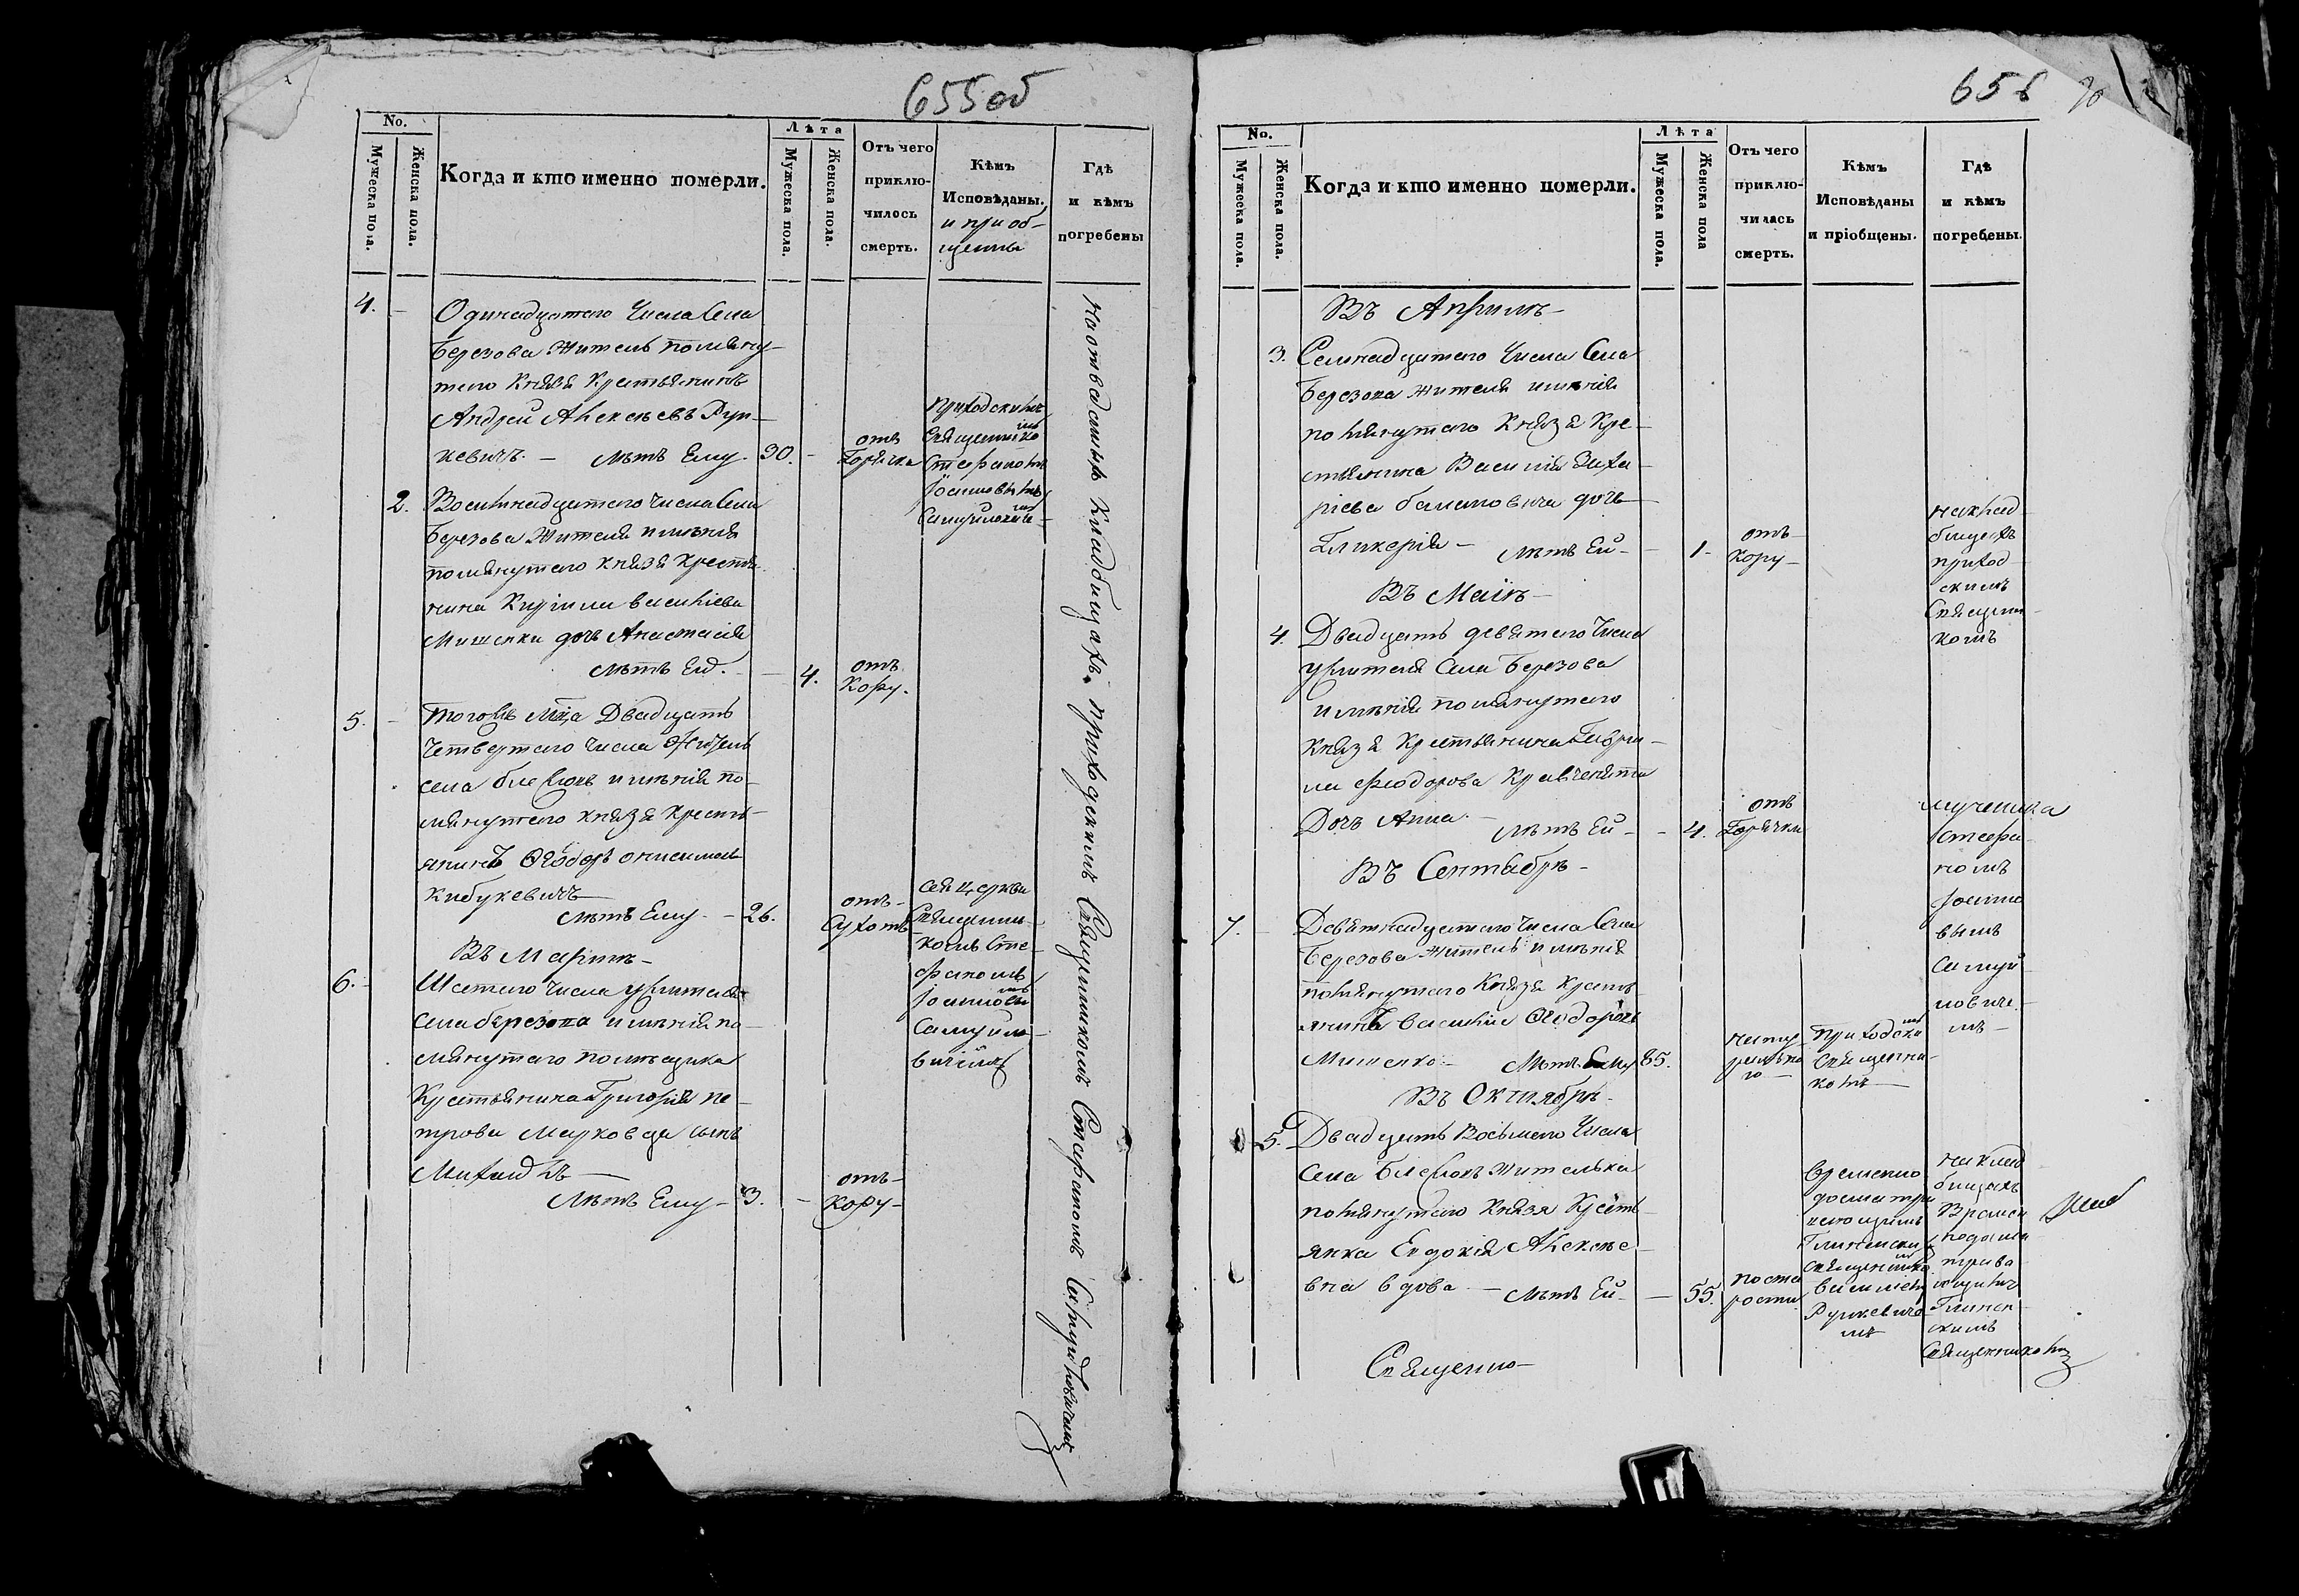 655об
No.
Мужеска пола.
Женска пола.
Когда и кто именно померли.
Лѣта
Мужеска пола.
Женска пола.
Отъ чего
приклю-
чилось
смерть.
Кѣмъ
Исповѣданы.
и приоб-
щенны
Гдѣ
и кѣмъ
погребены
4. —
Одинадцатого Числа Села
Березова Житель помяну-
того Князя Крестьянинъ
Андрей Алексѣевъ Рун-
кевичъ. — Лѣтъ Ему. 30. —
отъ
Горячки
Приходскимъ
Священнико
мъ
Стефаномъ
Іоанновымъ
2. Восемнадцатого Числа Села
Березова Жителя имѣнія
помянутого Князя Крестья-
нина Кирилы Василіева
Мишенки дочь Анастасія
Лѣтъ Ей. — 4.
отъ
Кору.
5. — Тогожъ Мца Двадцать
Четвертого Числа Житель
села имѣнія по-
мянутого Князя Кресть-
янинъ Ѳеодоръ
Кибукевичъ
Лѣтъ Ему. — 26.
отъ-
Сухотъ
Сея Церкви
Священни-
комъ Сте-
фаномъ
Іоанновы
мъ
Самуйло-
вичемъ
Въ Мартѣ —
6. — Шестого Числа у жителя
Села березова имѣнія по-
мянутого помѣщика
Крестьянина Григорія Пе-
трова Марковца сынъ
Михаилъ —
Лѣтъ Ему — 3. —
отъ-
Кору-
На отведенныхъ Кладбищахъ. Приходскимъ Священникомъ Стефаномъ
656
No.
Мужеска пола.
Женска пола.
Когда и кто именно померли.
Лѣта
Мужеска пола.
Женска пола
Отъ чего
приклю-
чилась
смерть.
Кѣмъ
Исповѣданы
и пріобщены.
Гдѣ
и кѣмъ
погребены.
Въ Априлѣ —
3. Семнадцатого Числа Села
Березова Жителя имѣнія
помянутого Князя Кре-
стьянина Василія Заха-
ріева дочь
Гликерія — Лѣтъ Ей — 1.
отъ-
Кору-
На клад-
бищахъ
приход
скимъ
Священни-
комъ
Въ Маіѣ —
4. Двадцать девятого Числа
у жителя Села Березова
имѣнія помянутого
Князя Крестьянина Гаври-
ли Феодорова
Дочь Анна — Лѣтъ Ей — 4.
отъ
Горячки
Стефа-
номъ
Іоанно
вымъ
Самуй
лович-
мъ —
Въ Сентабрѣ —
7. — Девятнадцатого Числа Села
Березова Житель имѣнія
помянутого Князя Кресть-
янинъ Василій Ѳеодоровъ
Мишенко — Лѣтъ Ему 85.
Приходски
мъ
Священни-
комъ —
Въ Октиабрѣ —
5. Двадцать Восьмого Числа
Села Жителька
помянутого Князя Кресть-
янка Евдокія Алексѣе-
вна вдова — Лѣтъ Ей — 55.
по ста
рости
Временно
Священнико
мъ
Василіемъ
Рункевиче
мъ
На клад
бищахъ
Времен
Глинск-
скимъ
Священникомъ
Священно —